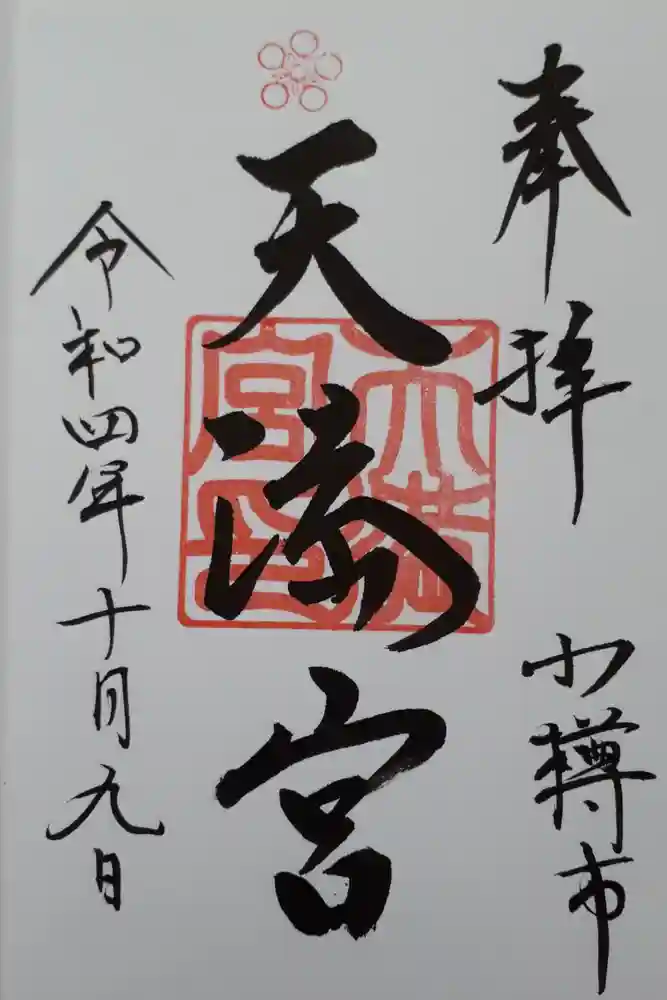 奉拝
小樽市
天満宮
天満宮印
令和四年十月九日